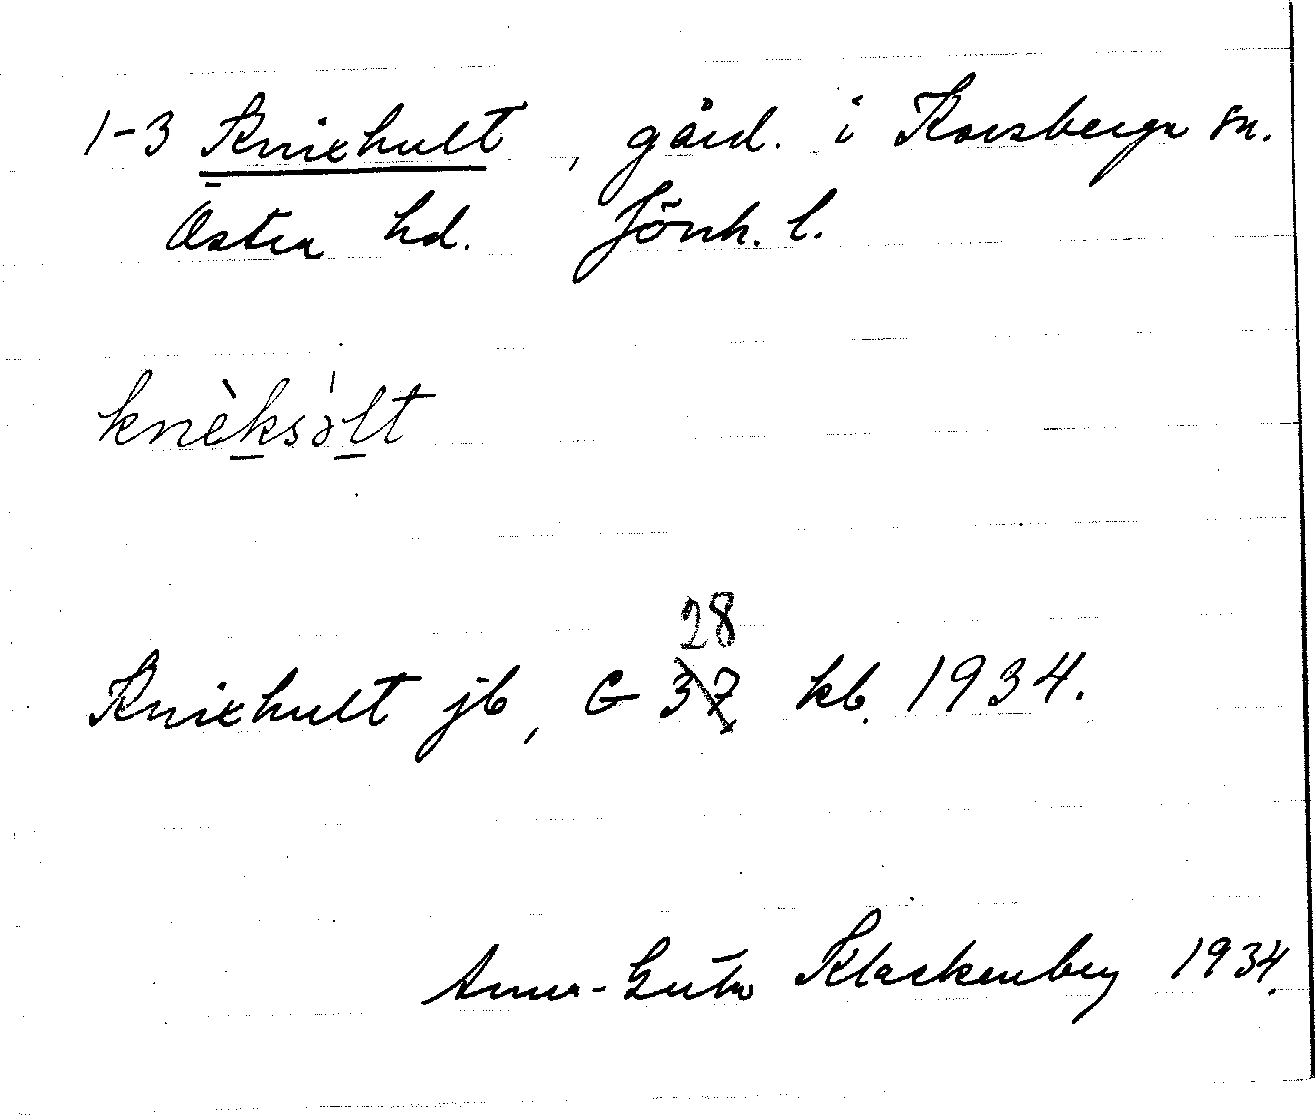 1-3 Knixhult, gård. i Korsberga sn.
Östra hd. Jönk. l.
knèksòlt
28
Knixhult jb, G 37 kb. 1934.
Anna-Greta Klackenberg 1934.